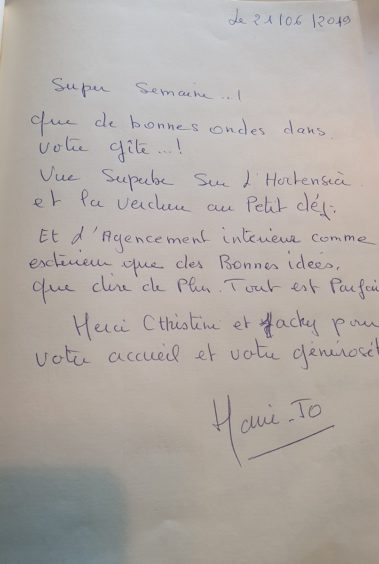 Le 21/06/2019
Super Semaine..!
que de bonnes ondes dans
votre gîte...!
Vue Superbe Sur l'Hortensia
et la verdure au Petit déj.
Et d'Agencement intérieur comme
extérieur que des Bonnes idées,
que dire de Plus. Tout est Parfai
Merci Christine et Jacky pour
votre accueil et votre générosit
Marie-Jo